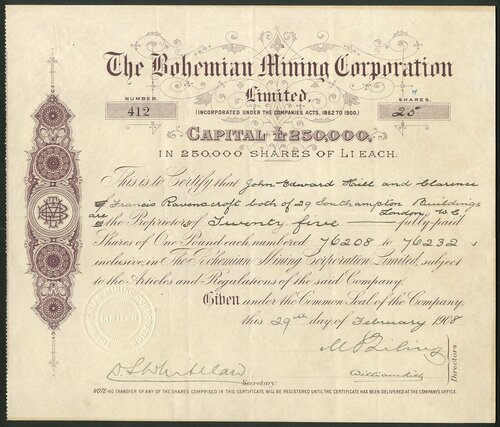 The Bohemian Mining Corporation
Limited,
NUMBER
412
(INCORPORATED UNDER THE COMPANIES ACTS, 1862 TO 1900.)
SHARES.
25
CAPITAL £250,000,
IN 250,000 SHARES OF £1 EACH.
This is to Certify that John Edward Hill and Clarence
Francis Ravenscroft both of 29 Southampton Buildings
London, W.C.
are the Proprietors of Twenty five fully paid
Shares of One Pound each numbered 76208 to 76232
inclusive, in The Bohemian Mining Corporation Limited, subject
to the Articles and Regulations of the said Company.
Given under the Common Seal of the Company,
this 29th day of February 1908
Directors.
Secretary.
NOTE:-NO TRANSFER OF ANY OF THE SHARES COMPRISED IN THIS CERTIFICATE WILL BE REGISTERED UNTIL THE CERTIFICATE HAS BEEN DELIVERED AT THE COMPANY'S OFFICE.
LIMITED